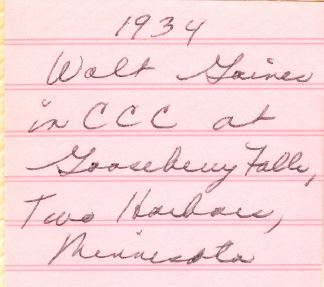 1934
Walt Gaines
in CCC at
Gooseberry Falls,
Two Harbors,
Minnesota